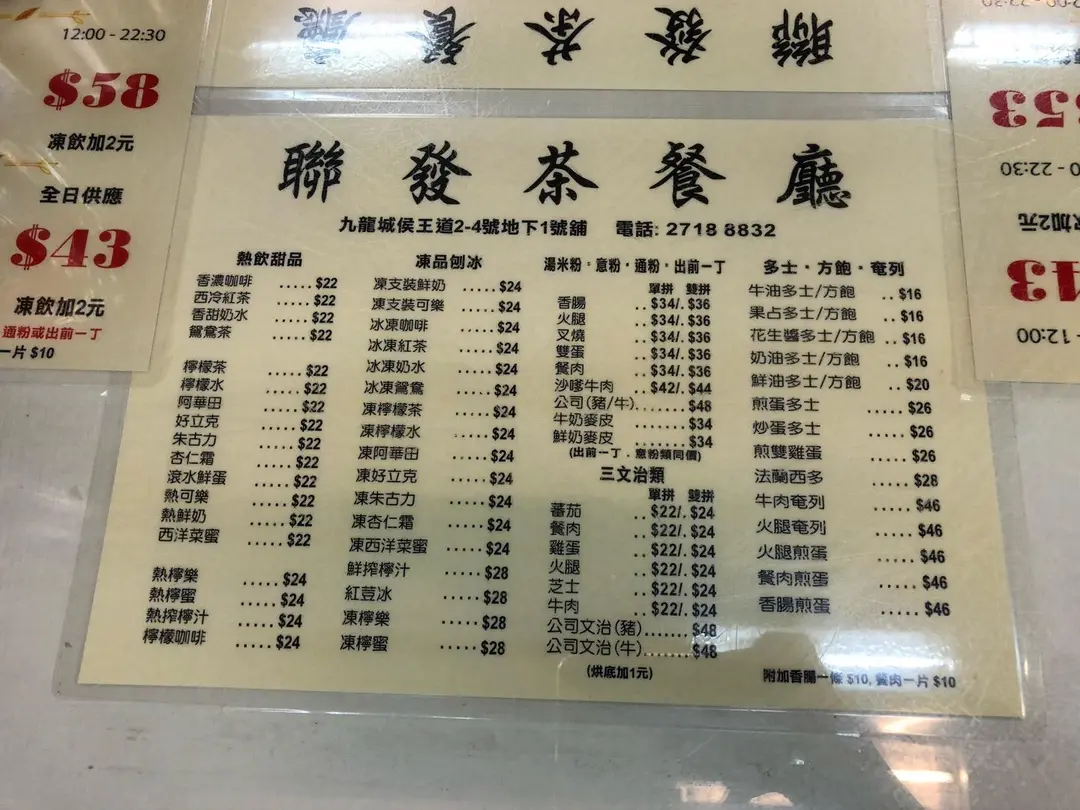 12:00 - 22:30
$58
凍飲加2元
全日供應
$43
凍飲加2元
通粉或出前一丁
一片 $10
聯發茶餐廳
聯發茶餐廳
九龍城侯王道2-4號地下1號舖 電話: 2718 8832
熱飲甜品
香濃咖啡 .....$22
西冷紅茶 .....$22
香甜奶水 .....$22
鴛鴦茶 .....$22
檸檬茶 .....$22
檸檬水 .....$22
阿華田 .....$22
好立克 .....$22
朱古力 .....$22
杏仁霜 .....$22
滾水鮮蛋 .....$22
熱可樂 .....$22
熱鮮奶 .....$22
西洋菜蜜 .....$22
熱檸樂 .....$24
熱檸蜜 .....$24
熱搾檸汁 .....$24
檸檬咖啡 .....$24
凍品刨冰
凍支裝鮮奶 .....$24
凍支裝可樂 .....$24
冰凍咖啡 .....$24
冰凍紅茶 .....$24
冰凍奶水 .....$24
冰凍鴛鴦 .....$24
凍檸檬茶 .....$24
凍檸檬水 .....$24
凍阿華田 .....$24
凍好立克 .....$24
凍朱古力 .....$24
凍杏仁霜 .....$24
凍西洋菜蜜 .....$24
鮮搾檸汁 .....$28
紅荳冰 .....$28
凍檸樂 .....$28
凍檸蜜 .....$28
湯米粉。意粉。通粉。出前一丁
單拼 雙拼
香腸 ..$34/. $36
火腿 ..$34/. $36
叉燒 ..$34/. $36
雙蛋 ..$34/. $36
餐肉 ..$34/. $36
沙嗲牛肉 ..$42/. $44
公司(豬/牛).......$48
牛奶麥皮 .......$34
鮮奶麥皮 .......$34
(出前一丁．意粉類同價)
三文治類
單拼 雙拼
蕃茄 ..$22/. $24
餐肉 ..$22/. $24
雞蛋 ..$22/. $24
火腿 ..$22/. $24
芝士 ..$22/. $24
牛肉 ..$22/. $24
公司文治(豬).......$48
公司文治(牛).......$48
(烘底加1元)
多士．方飽．奄列
牛油多士/方飽 ..$16
果占多士/方飽 ..$16
花生醬多士/方飽 ..$16
奶油多士/方飽 ..$16
鮮油多士/方飽 ..$20
煎蛋多士 .....$26
炒蛋多士 .....$26
煎雙雞蛋 .....$26
法蘭西多 .....$28
牛肉奄列 .....$46
火腿奄列 .....$46
火腿煎蛋 .....$46
餐肉煎蛋 .....$46
香腸煎蛋 .....$46
附加香腸一條 $10, 餐肉一片 $10
22:30
- 12:00